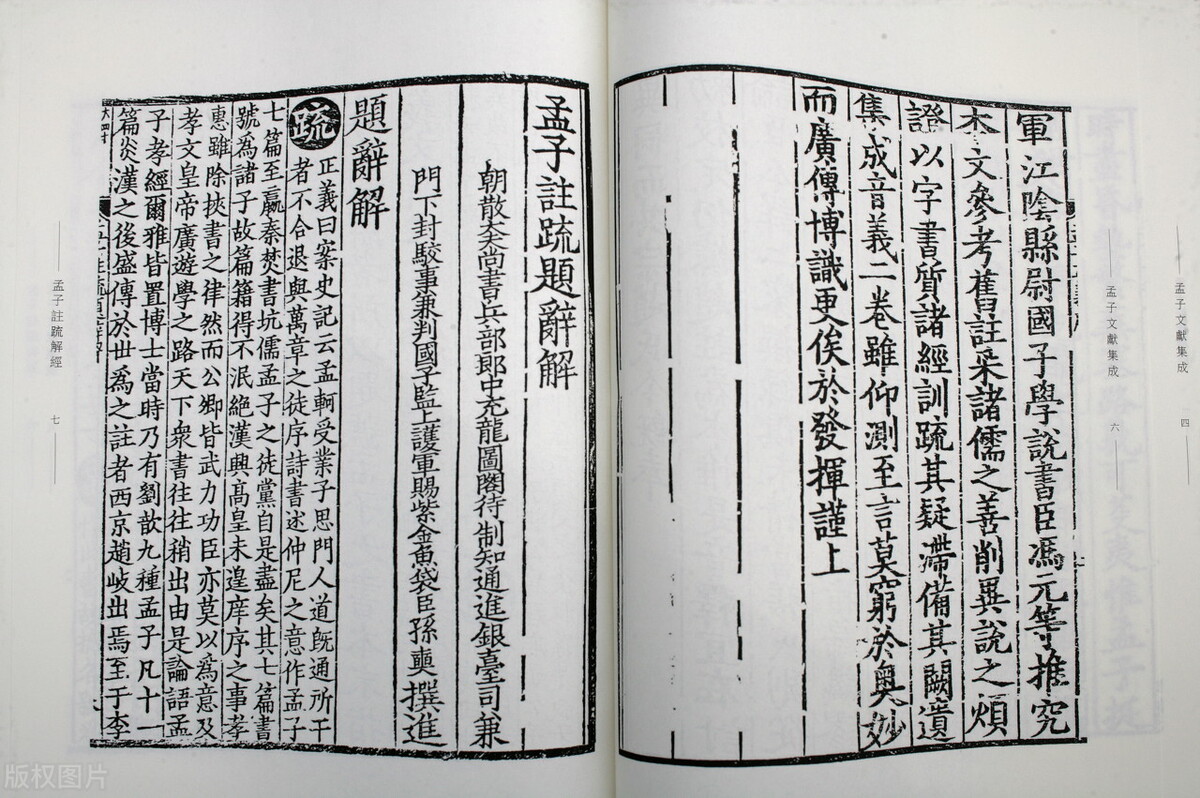 孟子文獻集成 四
孟子文獻集成 六
軍江陰縣尉國子學說書臣馮元等推究
本文參考舊註采諸儒之善削異說之煩
證以字書質諸經訓疏其疑滯備其闕遺
集成音義二卷雖仰測至言莫窮於奧妙
而廣傳博識更俟於發揮謹上
孟子註疏題辭解
朝散大夫尚書兵部郎中充龍圖閣待制知通進銀臺司兼
門下封駁事兼判國子監上護軍賜紫金魚袋臣孫奭撰進
題辭解
疏 正義曰案史記云孟軻受業子思門人道旣通所干
者不合退與萬章之徒序詩書述仲尼之意作孟子
七篇至嬴秦焚書坑儒孟子之徒黨自是盡矣其七篇書
號爲諸子故篇籍得不泯絕漢興高皇未遑庠序之事孝
惠雖除挾書之律然而公卿皆武力功臣亦莫以爲意及
孝文皇帝廣遊學之路天下衆書往往稍出由是論語孟
子孝經爾雅皆置博士當時乃有劉歆九種孟子凡十一
篇炎漢之後盛傳於世爲之註者西京趙岐出焉至于李
孟子註疏解經 七
版权图片